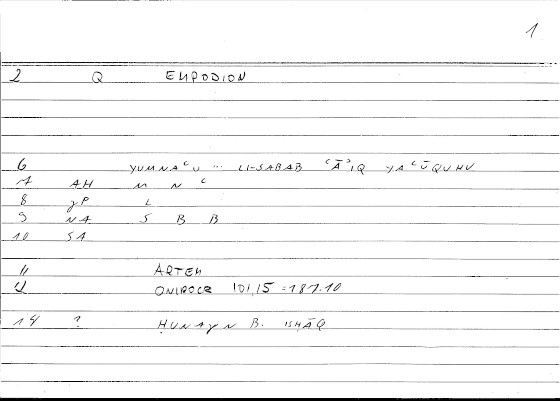 1
2 Q EMPODION
6 YUMNAʿU ... LI-SABAB ʿĀʾIQ YAʿŪQUHU
7 AH M N ʿ
8 γP L
9 NA S B B
10 SA
11 ARTEM
12 ONIROCR 101,15 = 187.10
14 ? ḤUNAYN B. ISḤĀQ